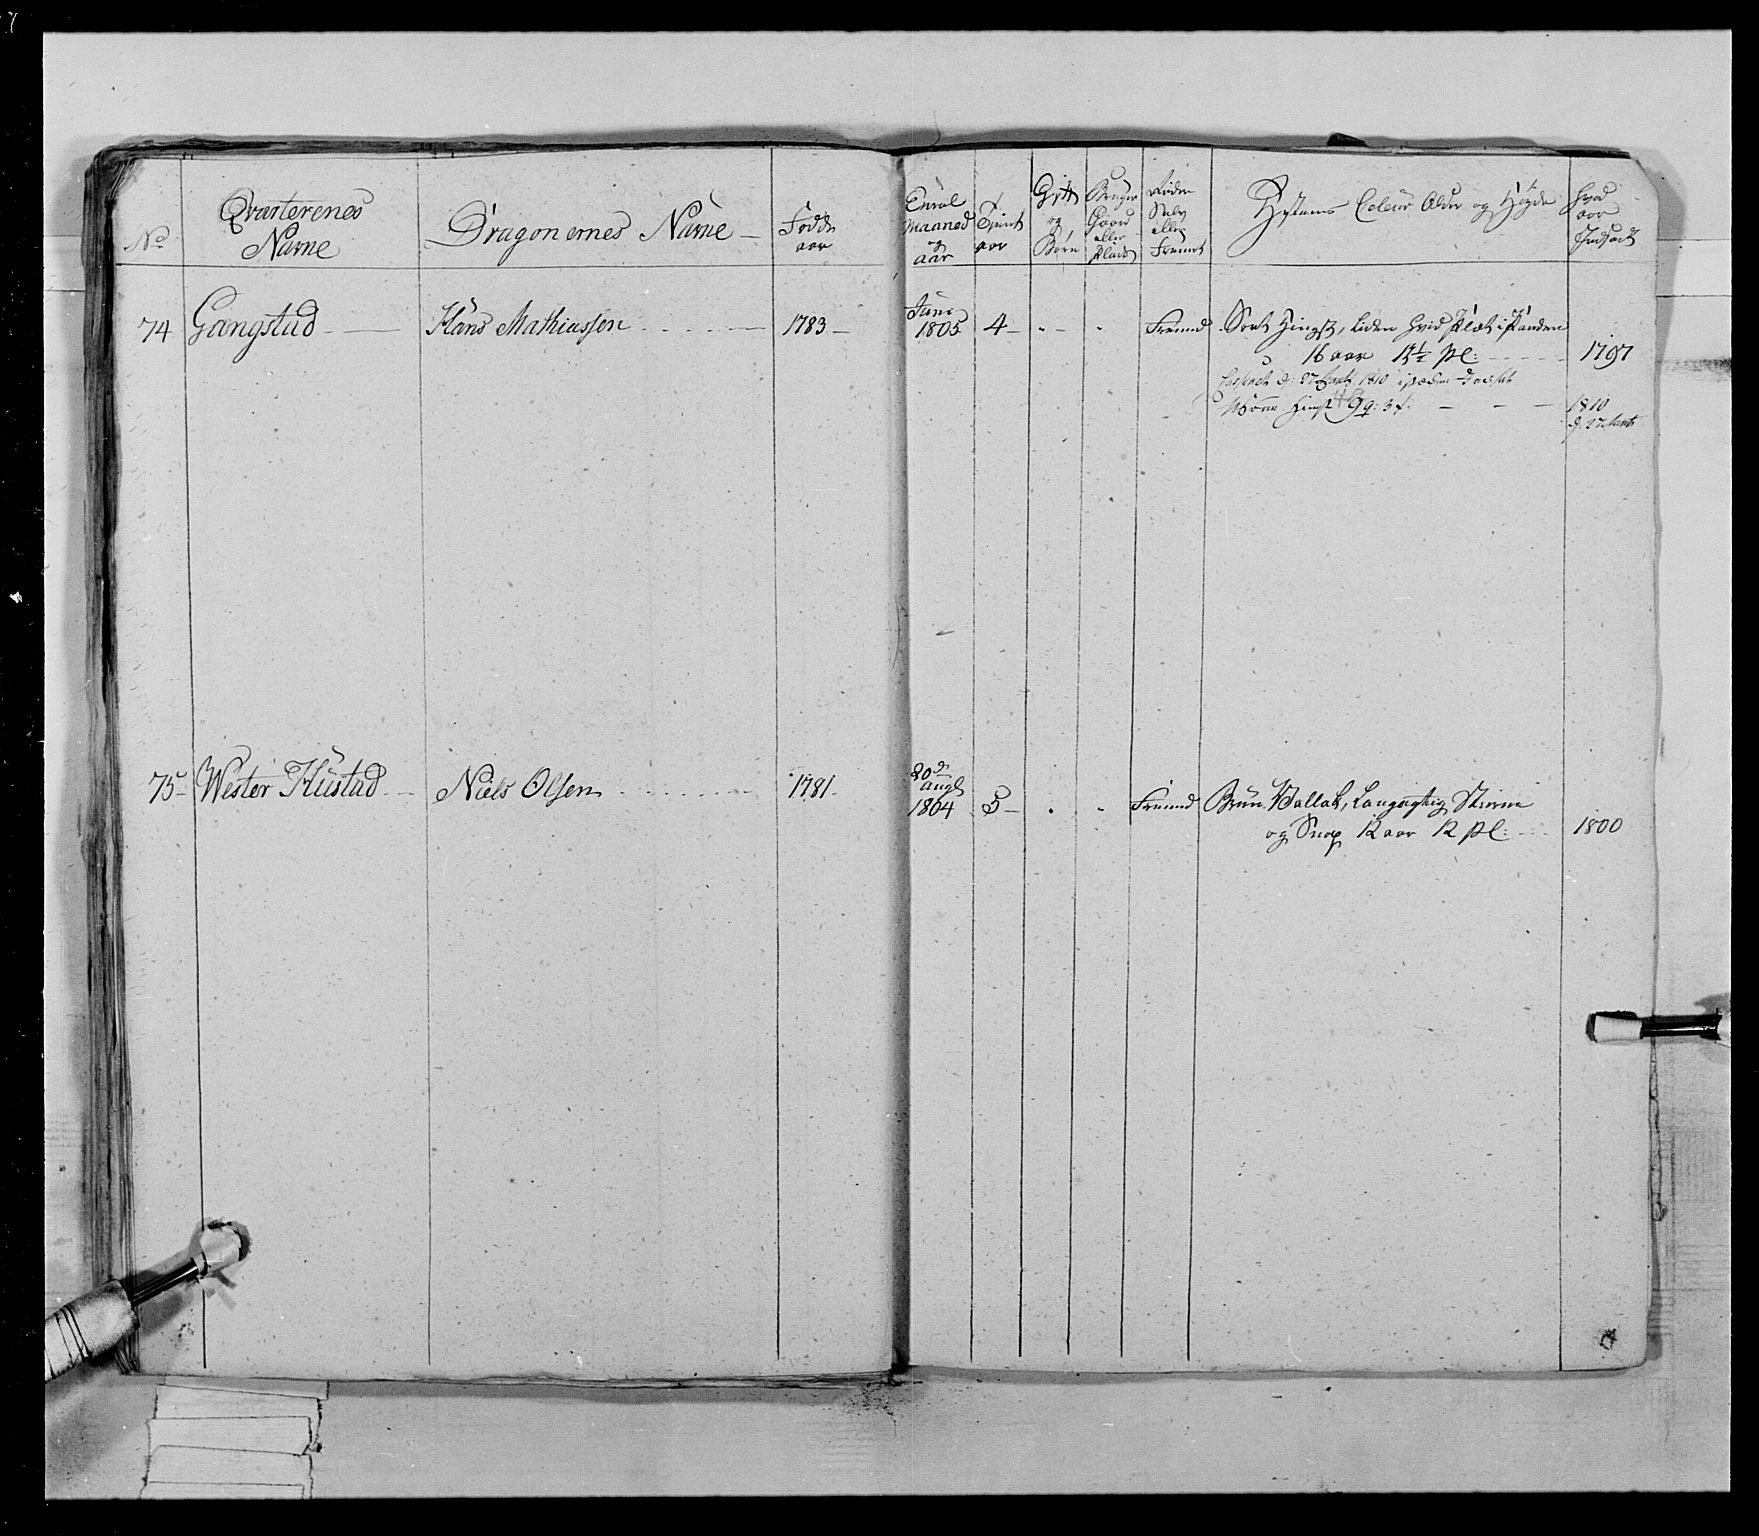 No
Qvarterenes
Navne
Dragonernes Navne
Fødde
aar
Enrol
Maaned
og
aar
Tjent
aar
Gift
og
Børn
Bruger
Gaard
eller
Plads
Riden
Selv
eller
Fremet
Hestens Coleur Alder og Høyde
Hvad
aar
Indsadt
74 Gangstad Hans Mathiassen 1783 Juni
1805 4 Fremd Sort Hingst, liden hvid Plet i Panden
16 aar 12½ pl: 1797
d: 27 Marts 1810 i steden Indsat
Hingst 9 q: 3 t. 1810
d. 27 Marts
75 Wester Hustad Niels Olsen 1781 20de
augt
1804 5 Fremd Brun Vallak, Langagtig Stierne
og Snop 12 aar 12 pl: 1800